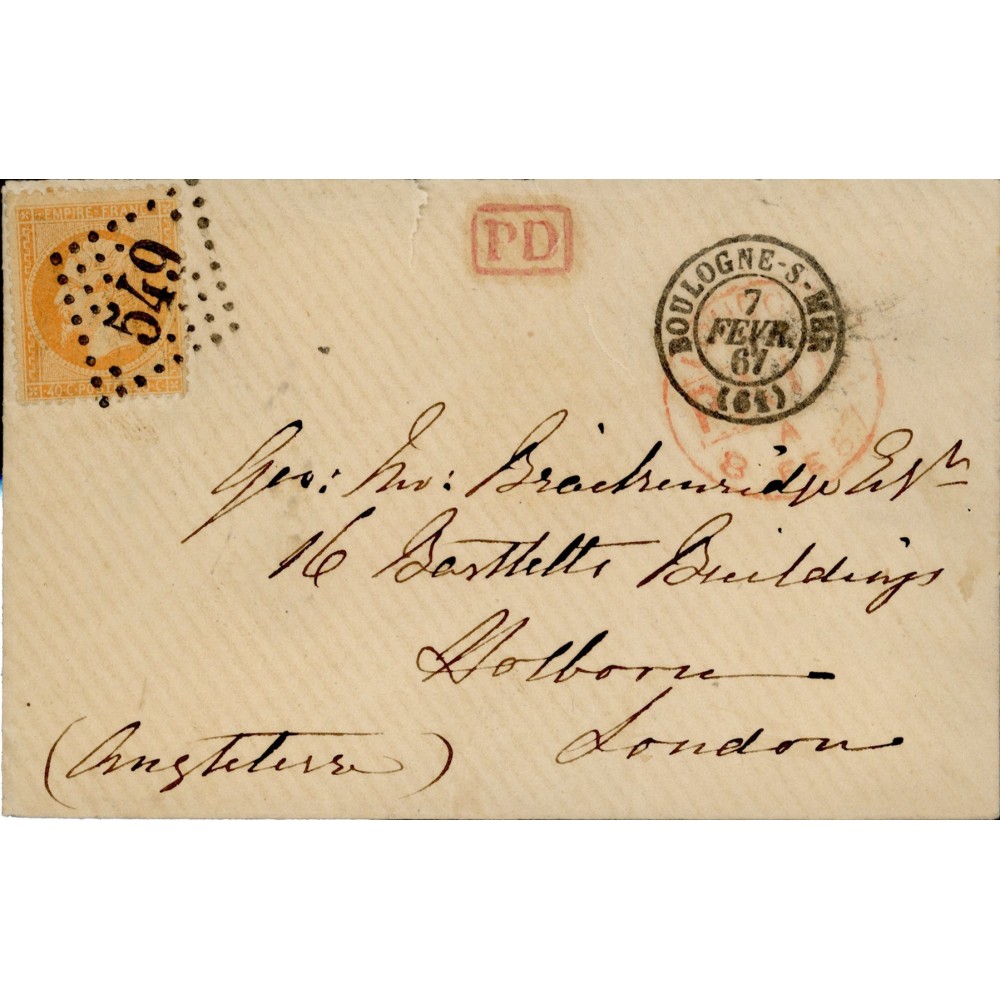 EMPIRE FRANC
549
40 C POSTES C
PD
BOULOGNE-S-MER
7
FEVR.
67
(61)
A
8 FE 67
Geo: Jno: Brackenridge Esqre
16 Bartletts Buildings
Holborn
London
(Angleterre)